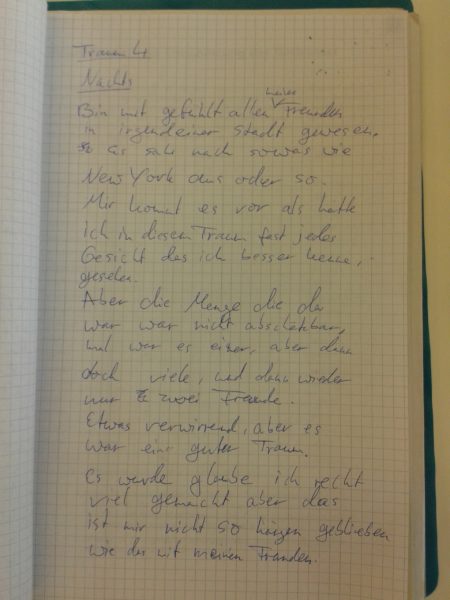 Traum 4
Nachts
Bin mit gefühlt allen meinen Freunden
in irgendeiner Stadt gewesen.
Es sah nach sowas wie
New York aus oder so.
Mir kommt es vor als hätte
ich in diesem Traum fast jedes
Gesicht das ich besser kenne,
gesehen.
Aber die Menge die da
war war nicht abschätzbar,
mal war es einer, aber dann
doch viele, und dann wieder
nur zwei Freunde.
Etwas verwirrend, aber es
war ein guter Traum.
Es wurde glaube ich recht
viel gemacht aber das
ist mir nicht so hängen geblieben
wie das mit meinen Freunden.